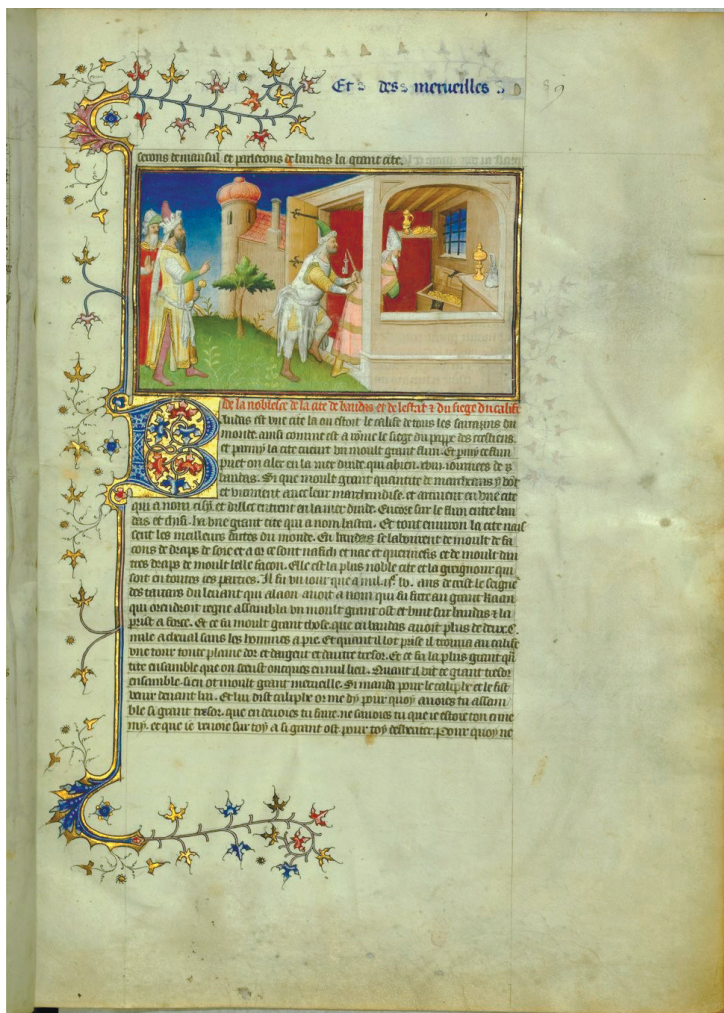 Et des merueilles
secons de mausul et parlerons de baudas la grant cite.
de la noblesce de la cite de baudas et de lestat & du siege du calife
Baudas est vne cite la ou estoit le calife de tous les sarrazins du
monde. ainsi comme est a rome le siege du pappe des crestiens.
et parmy la cite cueurt vn moult grant flun. Et par ce flun
puet on aler en la mer dinde qui a bien .xviii. iournees de
baudas. Si que moult grant quantite de marcheans y vont
et viennent auec leur marchandise. et arriuent en vne cite
qui a nom cisy. et dillec entrent en la mer dinde. Encore sur le flun entre bau
das et chisi. ha vne grant cite qui a nom bastra. Et tout enuiron la cite nais
sent les meilleurs dattes du monde. En baudas se labourent de moult de fa
cons de draps de soie et a or ce sont nasich et nac et quermesis et de moult dau
tres draps de moult belle facon. Elle est la plus noble cite et la greigneur qui
soit en toutes ces parties. Il fu vn iour que a mil.ii.c lv. ans de crist le seigneur
des tartars du leuant qui alaon auoit a nom qui fu frere au grant kaan
qui orendroit regne assambla vn moult grant ost et vint sur baudas & la
prist a force. Et ce fu moult grant chose. que en baudas auoit plus de deux c.
mile a cheual sans les hommes a pie. Et quant il lot prise il trouua au calife
vne tour toute plaine dor et dargent et dautre tresor. Et ce fu la plus grant quan
tite ensamble que on sceust oncques en nul lieu. Quant il vit ce grant tresor
ensamble. si en ot moult grant merueille. Si manda pour le caliphe et le fist
venir deuant lui. Et lui dist caliphe or me dy pour quoy auoies tu assam
ble si grant tresor. que en deuoies tu faire. ne sauoies tu que ie estoie ton enne
my. et que ie venoie sur toy a si grant ost pour toy desheriter. Pour quoy ne